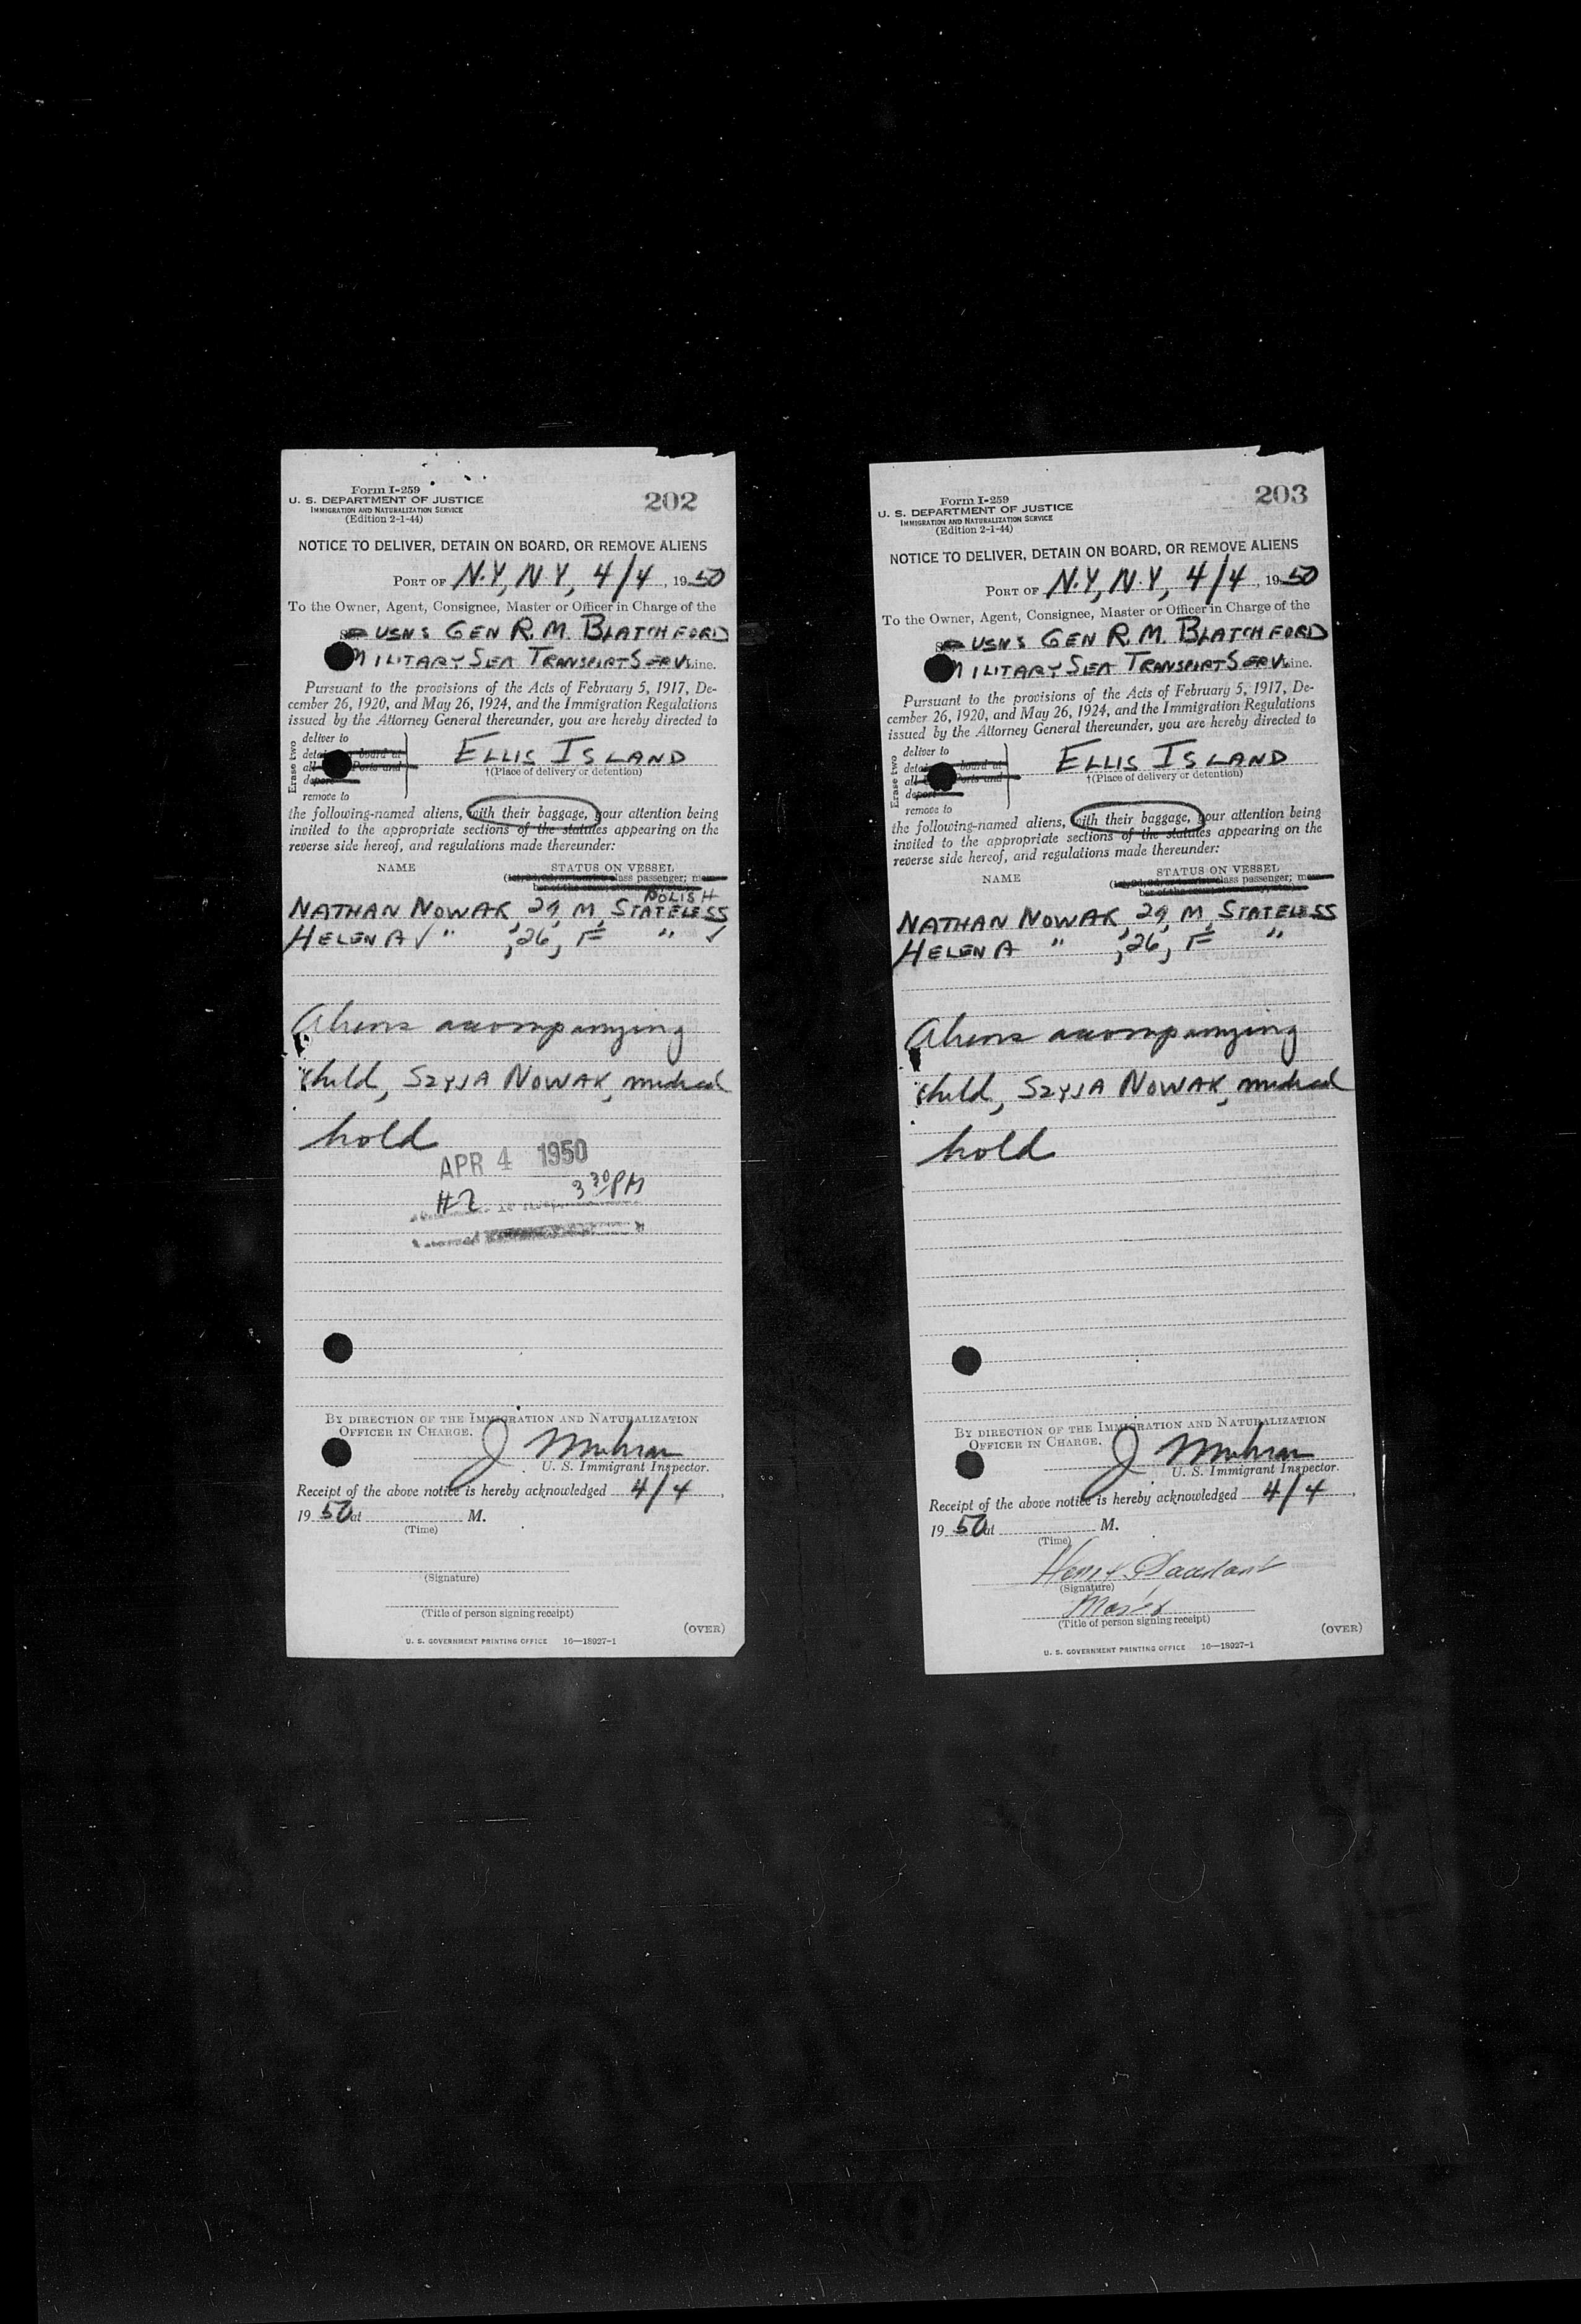 Form I-259
U. S. DEPARTMENT OF JUSTICE
IMMIGRATION AND NATURALIZATION SERVICE
(Edition 2-1-44)
202
NOTICE TO DELIVER, DETAIN ON BOARD, OR REMOVE ALIENS
PORT OF N.Y, N.Y, 4/4, 1950
To the Owner, Agent, Consignee, Master or Officer in Charge of the
USNS GEN R. M. BLATCHFORD
MILITARY SEA TRANSPORT SERV Line.
Pursuant to the provisions of the Acts of February 5, 1917, De-
cember 26, 1920, and May 26, 1924, and the Immigration Regulations
issued by the Attorney General thereunder, you are hereby directed to
Erase two
deliver to
board at
all Ports and
deport
remove to
ELLIS ISLAND
†(Place of delivery or detention)
the following-named aliens, with their baggage, your attention being
invited to the appropriate sections of the statutes appearing on the
reverse side hereof, and regulations made thereunder:
NAME STATUS ON VESSEL
class passenger;
POLISH
NATHAN NOWAK, 29, M, STATELESS
HELENA ✓ " , 26, F " ✓
Aliens accompanying
child, SZYJA NOWAK, medical
hold
APR 4 1950
#2 3 30 PM
BY DIRECTION OF THE IMMIGRATION AND NATURALIZATION
OFFICER IN CHARGE.
J
U. S. Immigrant Inspector.
Receipt of the above notice is hereby acknowledged 4/4,
1950 at M.
(Time)
(Signature)
(Title of person signing receipt)
(OVER)
U. S. GOVERNMENT PRINTING OFFICE 16—18927-1
Form I-259
U. S. DEPARTMENT OF JUSTICE
IMMIGRATION AND NATURALIZATION SERVICE
(Edition 2-1-44)
203
NOTICE TO DELIVER, DETAIN ON BOARD, OR REMOVE ALIENS
PORT OF N.Y, N.Y, 4/4, 1950
To the Owner, Agent, Consignee, Master or Officer in Charge of the
USNS GEN R. M. BLATCHFORD
MILITARY SEA TRANSPORT SERV Line.
Pursuant to the provisions of the Acts of February 5, 1917, De-
cember 26, 1920, and May 26, 1924, and the Immigration Regulations
issued by the Attorney General thereunder, you are hereby directed to
Erase two
deliver to
board at
all Ports and
deport
remove to
ELLIS ISLAND
†(Place of delivery or detention)
the following-named aliens, with their baggage, your attention being
invited to the appropriate sections of the statutes appearing on the
reverse side hereof, and regulations made thereunder:
NAME STATUS ON VESSEL
class passenger;
NATHAN NOWAK, 29, M, STATELESS
HELENA " , 26, F "
Aliens accompanying
child, SZYJA NOWAK, medical
hold
BY DIRECTION OF THE IMMIGRATION AND NATURALIZATION
OFFICER IN CHARGE.
J
U. S. Immigrant Inspector.
Receipt of the above notice is hereby acknowledged 4/4,
1950 at M.
(Time)
(Signature)
(Title of person signing receipt)
(OVER)
U. S. GOVERNMENT PRINTING OFFICE 16—18927-1